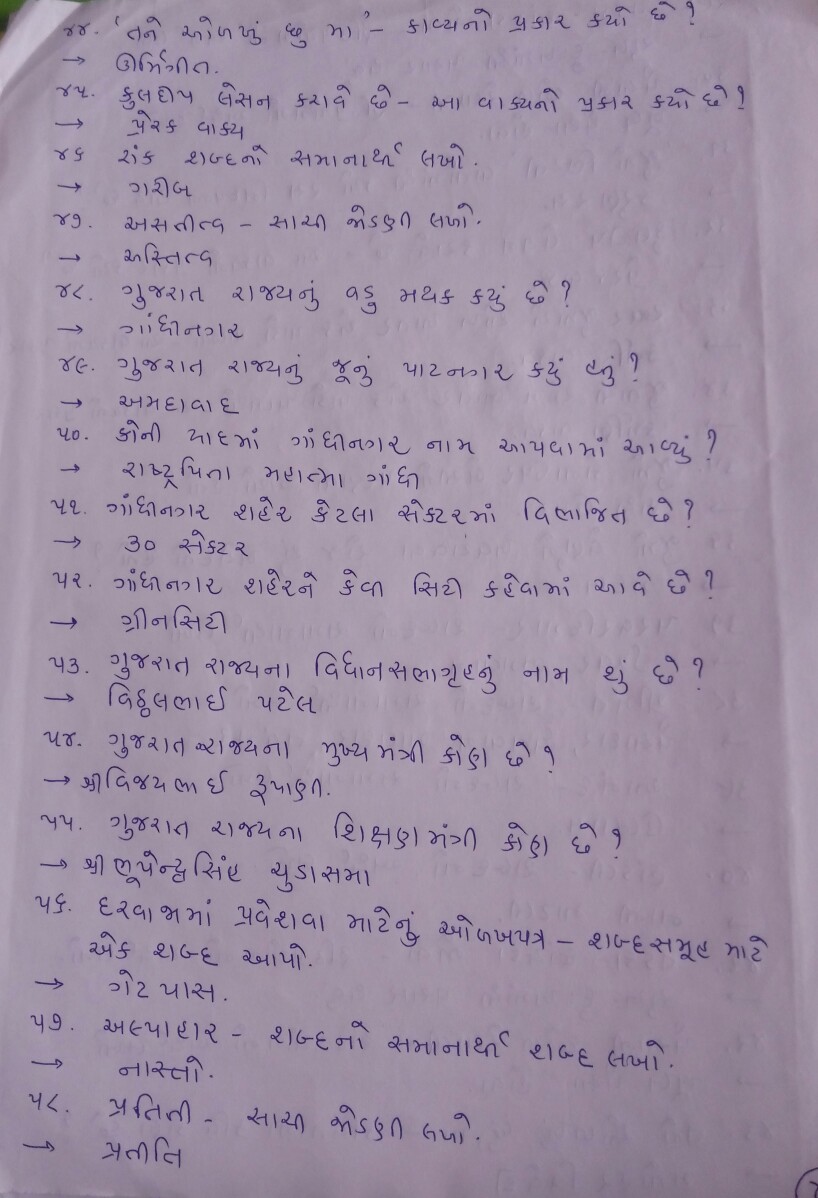 ૪૪. 'તને ઓળખું છુ મા' - કાવ્યનો પ્રકાર કયો છે?
→ ઊર્મિગીત.
૪૫. કુલદીપ લેસન કરાવે છે - આ વાક્યનો પ્રકાર કયો છે?
→ પ્રેરક વાક્ય
૪૬ રાંક શબ્દનો સમાનાર્થી લખો.
→ ગરીબ
૪૭. અસતીત્વ - સાચી જોડણી લખો.
→ અસ્તિત્વ
૪૮. ગુજરાત રાજ્યનું વડુ મથક કયું છે?
→ ગાંધીનગર
૪૯. ગુજરાત રાજ્યનું જૂનું પાટનગર કયું હતું?
→ અમદાવાદ
૫૦. કોની યાદમાં ગાંધીનગર નામ આપવામાં આવ્યું?
→ રાષ્ટ્રપિતા મહાત્મા ગાંધી
૫૧. ગાંધીનગર શહેર કેટલા સેક્ટરમાં વિભાજિત છે?
→ ૩૦ સેક્ટર
૫૨. ગાંધીનગર શહેરને કેવી સિટી કહેવામાં આવે છે?
→ ગ્રીનસિટી
૫૩. ગુજરાત રાજ્યના વિધાનસભાગૃહનું નામ શું છે?
→ વિઠ્ઠલભાઈ પટેલ
૫૪. ગુજરાત રાજ્યના મુખ્યમંત્રી કોણ છે?
→ શ્રી વિજયભાઈ રૂપાણી.
૫૫. ગુજરાત રાજ્યના શિક્ષણમંત્રી કોણ છે?
→ શ્રી ભૂપેન્દ્રસિંહ ચુડાસમા
૫૬. દરવાજામાં પ્રવેશવા માટેનું ઓળખપત્ર - શબ્દસમૂહ માટે
એક શબ્દ આપો.
→ ગેટ પાસ.
૫૭. અલ્પાહાર - શબ્દનો સમાનાર્થી શબ્દ લખો.
→ નાસ્તો.
૫૮. પ્રતિતી - સાચી જોડણી લખો.
→ પ્રતીતિ